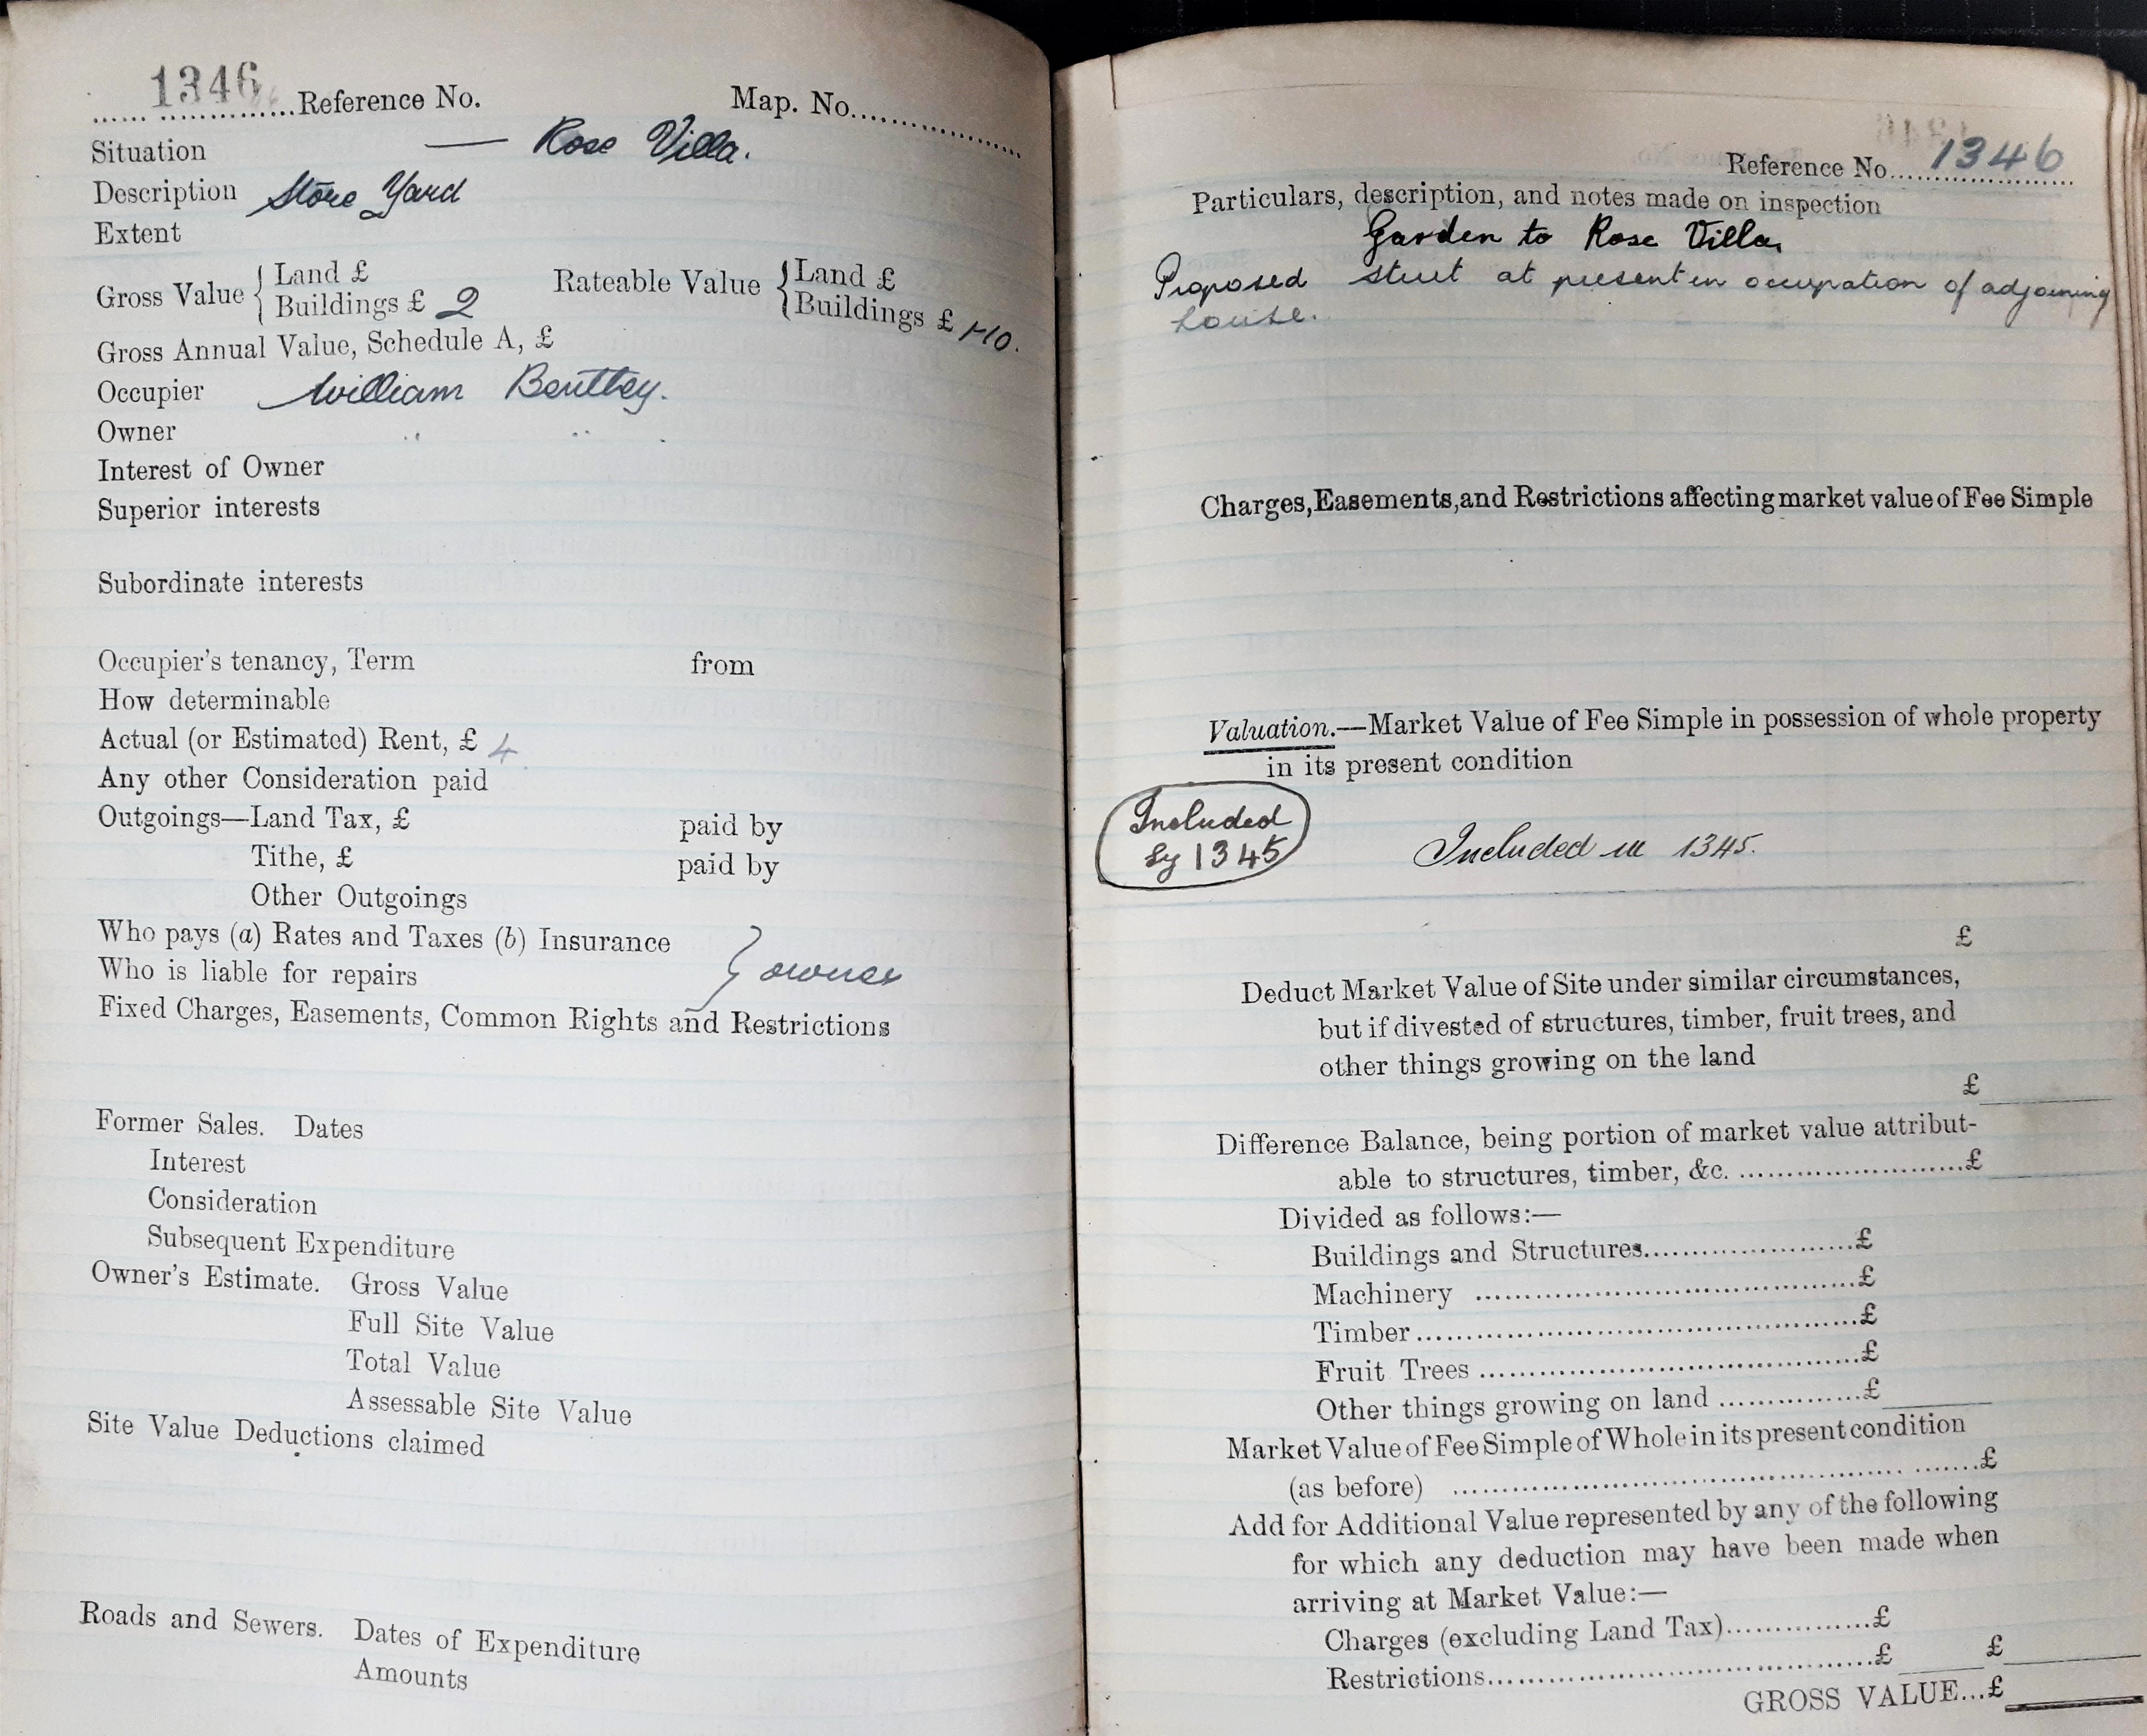 1346 Reference No. Map. No.
Situation — Rose Villa.
Description Store Yard
Extent
Gross Value { Land £ Rateable Value { Land £
Buildings £ 2 Buildings £ 1-10.
Gross Annual Value, Schedule A, £
Occupier William Benttey.
Owner " "
Interest of Owner
Superior interests
Subordinate interests
Occupier's tenancy, Term from
How determinable
Actual (or Estimated) Rent, £ 4
Any other Consideration paid
Outgoings—Land Tax, £ paid by
Tithe, £ paid by
Other Outgoings
Who pays (a) Rates and Taxes (b) Insurance
Who is liable for repairs } owner
Fixed Charges, Easements, Common Rights and Restrictions
Former Sales. Dates
Interest
Consideration
Subsequent Expenditure
Owner's Estimate. Gross Value
Full Site Value
Total Value
Assessable Site Value
Site Value Deductions claimed
Roads and Sewers. Dates of Expenditure
Amounts
Reference No. 1346
Particulars, description, and notes made on inspection
Garden to Rose Villa,
Proposed street at present in occupation of adjoining
house.
Charges, Easements, and Restrictions affecting market value of Fee Simple
Valuation.—Market Value of Fee Simple in possession of whole property
in its present condition
Included
by 1345
Included in 1345.
£
Deduct Market Value of Site under similar circumstances,
but if divested of structures, timber, fruit trees, and
other things growing on the land
£
Difference Balance, being portion of market value attribut-
able to structures, timber, &c. £
Divided as follows:—
Buildings and Structures £
Machinery £
Timber £
Fruit Trees £
Other things growing on land £
Market Value of Fee Simple of Whole in its present condition
(as before) £
Add for Additional Value represented by any of the following
for which any deduction may have been made when
arriving at Market Value:—
Charges (excluding Land Tax) £
Restrictions £ £
GROSS VALUE...£